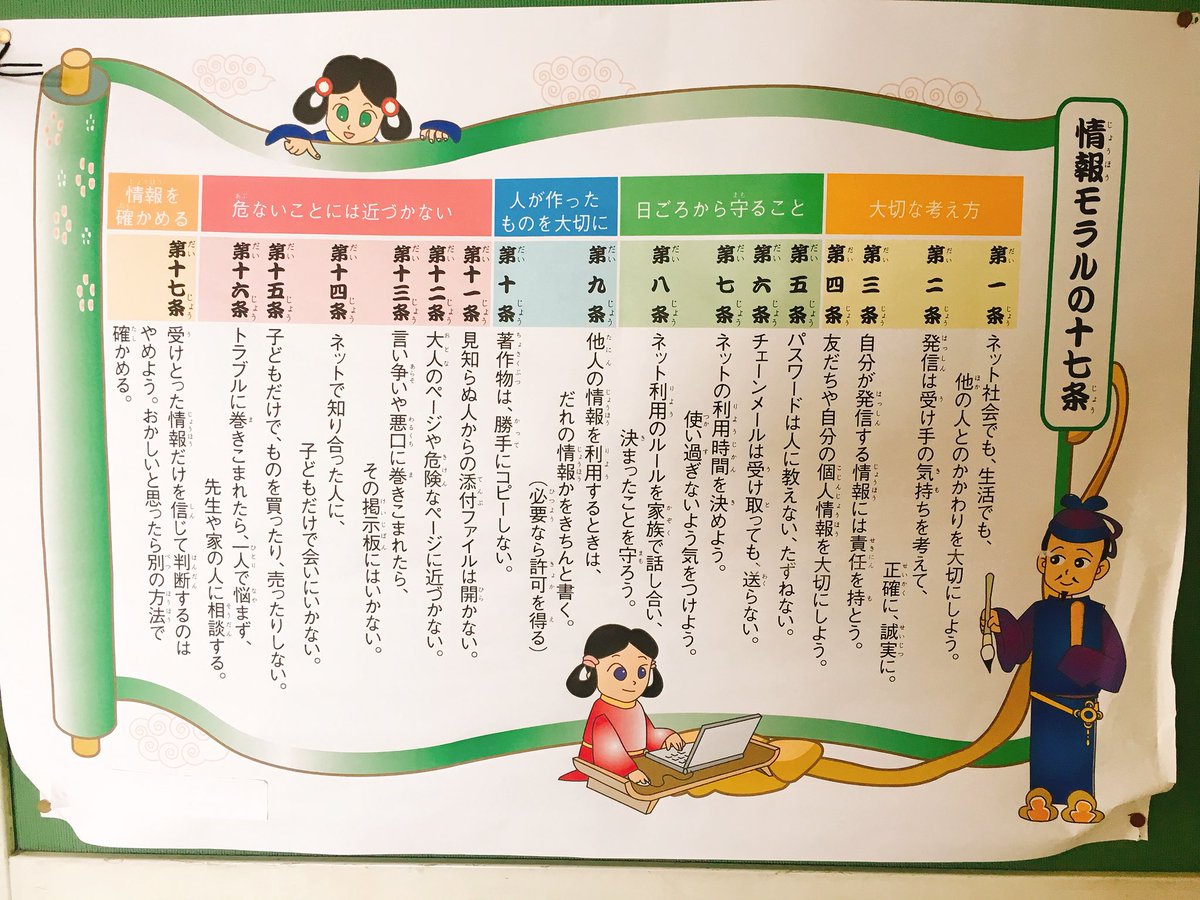 情報モラルの十七条
大切な考え方
第一条
ネット社会でも、生活でも、
他の人とのかかわりを大切にしよう。
第二条
発信は受け手の気持ちを考えて、
正確に、誠実に。
第三条
自分が発信する情報には責任を持とう。
第四条
友だちや自分の個人情報を大切にしよう。
日ごろから守ること
第五条
パスワードは人に教えない、たずねない。
第六条
チェーンメールは受け取っても、送らない。
第七条
ネットの利用時間を決めよう。
使い過ぎないよう気をつけよう。
第八条
ネット利用のルールを家族で話し合い、
決まったことを守ろう。
人が作った
ものを大切に
第九条
他人の情報を利用するときは、
だれの情報かをきちんと書く。
(必要なら許可を得る)
第十条
著作物は、勝手にコピーしない。
危ないことには近づかない
第十一条
見知らぬ人からの添付ファイルは開かない。
第十二条
大人のページや危険なページに近づかない。
第十三条
言い争いや悪口に巻きこまれたら、
その掲示板にはいかない。
第十四条
ネットで知り合った人に、
子どもだけで会いにいかない。
第十五条
子どもだけで、ものを買ったり、売ったりしない。
第十六条
トラブルに巻きこまれたら、一人で悩まず、
先生や家の人に相談する。
情報を
確かめる
第十七条
受けとった情報だけを信じて判断するのは
やめよう。おかしいと思ったら別の方法で
確かめる。